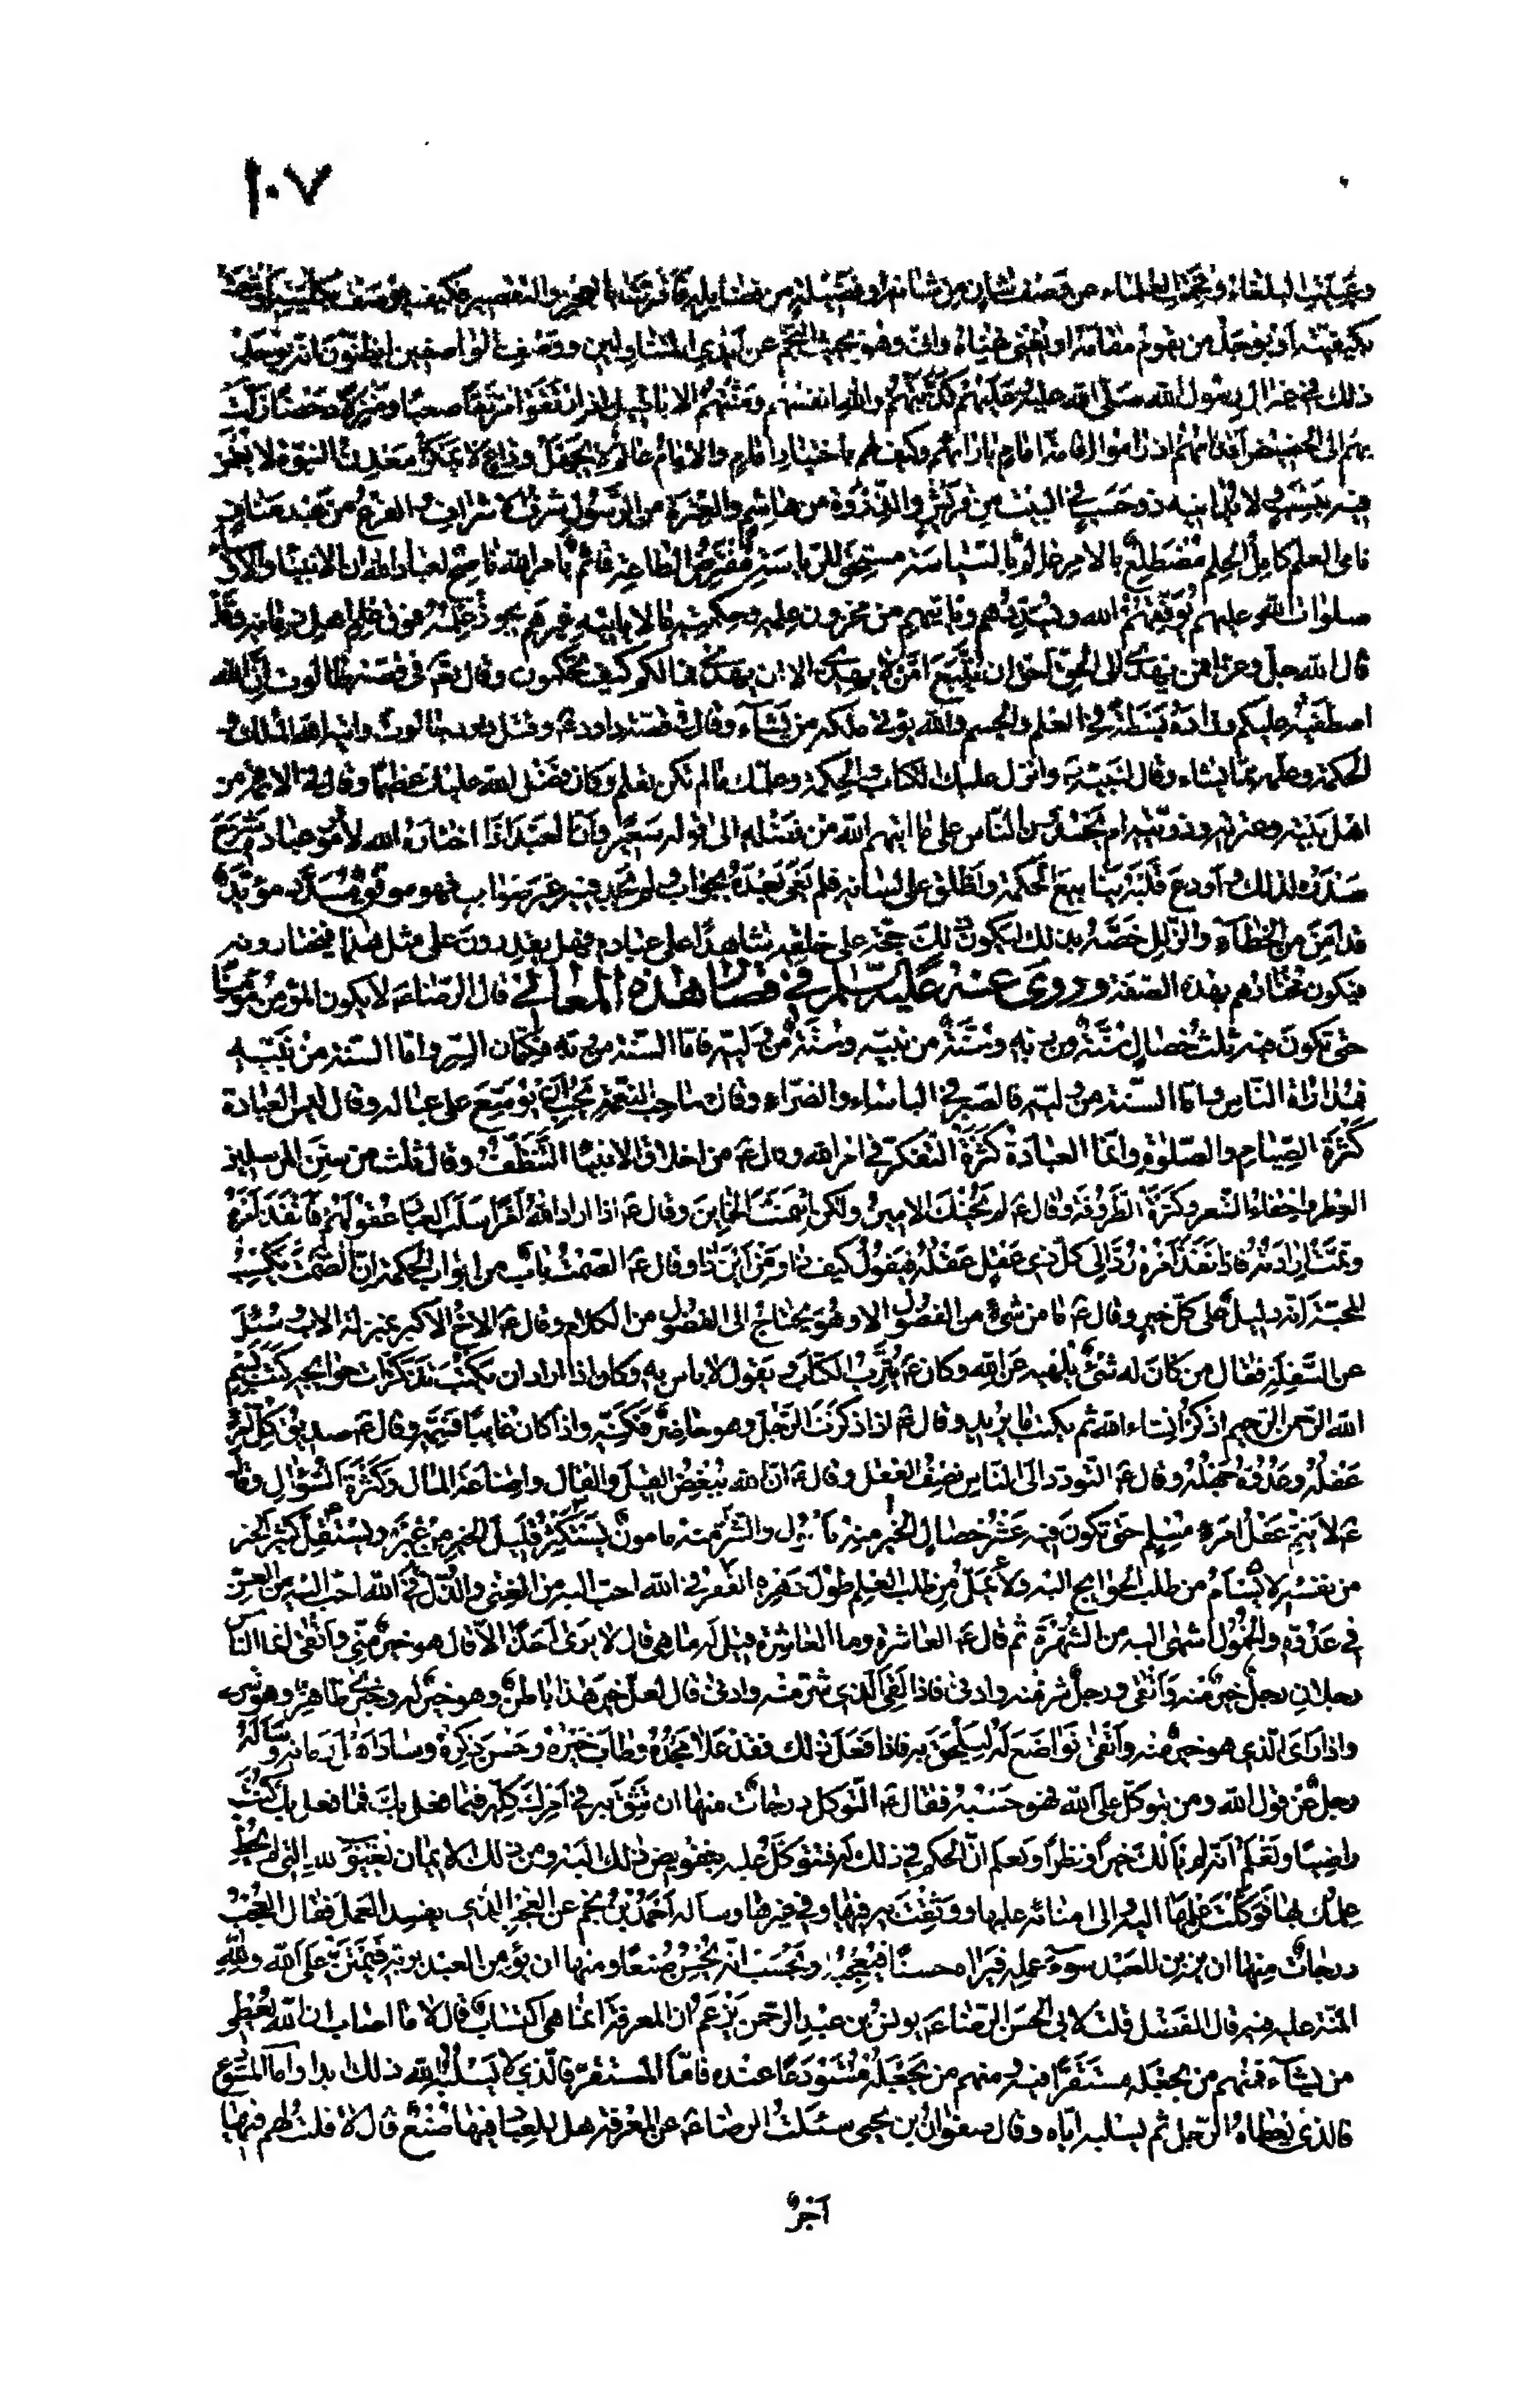 ١٠٧
وعييت البلغاء وفحمت العلماء عن وصف شان من شانه او فضيلة من فضايله فاقرت بالعجز والتقصير فكيف يوصف بكليته او ينعت
بكيفيته او يوجد من يقوم مقامه او يغنى غناه وانى وهو بحيث النجم عن ايدى المتناولين ووصف الواصفين ايظنون انه يوجد
ذلك فى غير آل رسول الله صلى الله عليه وعليهم كذبتهم والله انفسهم ومنتهم الاباطيل اذ ارتقوا مرتقا صعبا ومنزلا دحضا زلت
بهم الى الحضيض اقدامهم اذ راموا اقامة امام بارائهم وكيف لهم باختيار امام والامام عالم لا يجهل وراع لا يمكر معدن النبوة لا يغمز
فيه بنسب ولا يدانيه ذو حسب فى البيت من قريش والذروة من هاشم والعترة من الرسول شرف الاشراف والفرع من عبد مناف
نامى العلم كامل الحلم مضطلع بالامر عالم بالسياسة مستحق للرياسة مفترض الطاعة قائم بامر الله ناصح لعباد الله ان الانبياء والاوصياء
صلوات الله عليهم يوفقهم الله ويسددهم ويؤتيهم من مخزون علمه وحكمته ما لا يؤتيه غيرهم يكون علمهم فوق علم اهل زمانهم وقد
قال الله جل وعز افمن يهدى الى الحق احق ان يتبع امن لا يهدى الا ان يهدى فما لكم كيف تحكمون وقال تع فى قصة طالوت ان الله
اصطفيه عليكم وزاده بسطة فى العلم والجسم والله يؤتى ملكه من يشآء وقال فى قصة داود ع وقتل داود جالوت واتيه الله الملك و
الحكمة وعلمه مما يشاء وقال لنبيه ص وانزل عليك الكتاب والحكمة وعلمك ما لم تكن تعلم وكان فضل الله عليك عظيما وقال فى الائمة من
اهل بيته وعترته وذريته ام يحسدون الناس على ما اتيهم الله من فضله الى قوله سعيرا وان العبد اذا اختاره الله لامور عباده شرح
صدره لذلك واودع قلبه ينابيع الحكمة واطلق على لسانه فلم يعى بعده بجواب ولم تجد فيه غير صواب فهو موفق مسدد مؤيد
قد امن من الخطآء والزلل خصه بذلك ليكون ذلك حجة على خلقه شاهدا على عباده فهل يقدرون على مثل هذا فيختارونه
فيكون مختارهم بهذه الصفة وروى عنه عليه السلام فى قصار هذه المعانى قال الرضا ع لا يكون المؤمن مؤمنا
حتى تكون فيه ثلث خصال سنة من ربه وسنة من نبيه وسنة من وليه فاما السنة من ربه فكتمان السر واما السنة من نبيه
فمداراة الناس واما السنة من وليه فالصبر فى الباساء والضراء وقال صاحب النعمة يجب ان يوسع على عياله وقال ليس العبادة
كثرة الصيام والصلوة وانما العبادة كثرة التفكر فى امر الله وقال ع من اخلاق الانبيا التنظف وقال ثلث من سنن المرسلين
العطر واحفاء الشعر وكثرة الطروقة وقال ع لم يخنك الامين ولكن ائتمنت الخاين وقال ع اذا اراد الله امرا سلب العباد عقولهم فانفذ امره
وتمت ارادته فاذا انفذ امره رد الى كل ذى عقل عقله فيقول كيف ذا ومن اين ذا وقال ع الصمت باب من ابواب الحكمة ان الصمت يكسب
المحبة انه دليل على كل خير وقال ع ما من شىء من الفضول الا وهو يحتاج الى الفضول من الكلام وقال ع الاخ الاكبر بمنزلة الاب وسئل
عن السفلة فقال من كان له شىء يلهيه عن الله وكان ع يترب الكتاب ويقول لا باس به وكان اذا اراد ان يكتب تذكرات حوائجه كتب بسم
الله الرحمن الرحيم اذكر انشاء الله ثم يكتب ما يريد وقال ع اذا ذكرت الرجل وهو حاضر فكنه واذا كان غايبا فسمه وقال ع صديق كل امرء
عقله وعدوه جهله وقال ع التودد الى الناس نصف العقل وقال ع ان الله يبغض القيل والقال واضاعة المال وكثرة السؤال وقال
ع لا يتم عقل امرء مسلم حتى تكون فيه عشر خصال الخير منه مامول والشر منه مامون يستكثر قليل الخير من غيره ويستقل كثير الخير
من نفسه لا يسام من طلب الحوايج اليه ولا يمل من طلب العلم طول دهره الفقر فى الله احب اليه من الغنى والذل فى الله احب اليه من العز
فى عدوه والخمول اشهى اليه من الشهرة ثم قال ع العاشرة وما العاشرة قيل له ما هى قال لا يرى احدا الا قال هو خير منى واتقى انما الناس
رجلان رجل خير منه واتقى ورجل شر منه وادنى فاذا لقى الذى شر منه وادنى قال لعل خير هذا باطن وهو خير له وخيرى ظاهر وهو شر لى
واذا راى الذى هو خير منه واتقى تواضع له ليلحق به فاذا فعل ذلك فقد علا مجده وطاب خيره وحسن ذكره وساد اهل زمانه وساله
رجل عن قول الله ومن يتوكل على الله فهو حسبه فقال ع التوكل درجات منها ان تثق به فى امرك كله فيما فعل بك فما فعل بك كنت
راضيا وتعلم انه لم يالك خيرا ونظرا وتعلم ان الحكم فى ذلك له فتتوكل عليه بتفويض ذلك اليه ومن ذلك الايمان بغيوب الله التى لم يحط
علمك بها فوكلت علمها اليه والى امنائه عليها ووثقت به فيها وفى غيرها وساله احمد بن نجم عن العجب الذى يفسد العمل فقال العجب
درجات منها ان يزين للعبد سوء عمله فيراه حسنا فيعجبه ويحسب انه يحسن صنعا ومنها ان يؤمن العبد بربه فيمتن على الله ولله
المنة عليه فيه قال الفضل قلت لابى الحسن الرضا ع يونس بن عبد الرحمن يزعم ان المعرفة انما هى اكتساب قال لا ما اصاب ان الله يعطى
من يشآء فمنهم من يجعله مستقرا فيه ومنهم من يجعله مستودعا عنده فاما المستقر فالذى لا يسلب الله ذلك ابدا واما المستودع
فالذى يعطاه الرجل ثم يسلبه اياه وقال صفوان بن يحيى سئلت الرضا ع عن المعرفة هل للعباد فيها صنع قال لا قلت لهم فيها
آجر